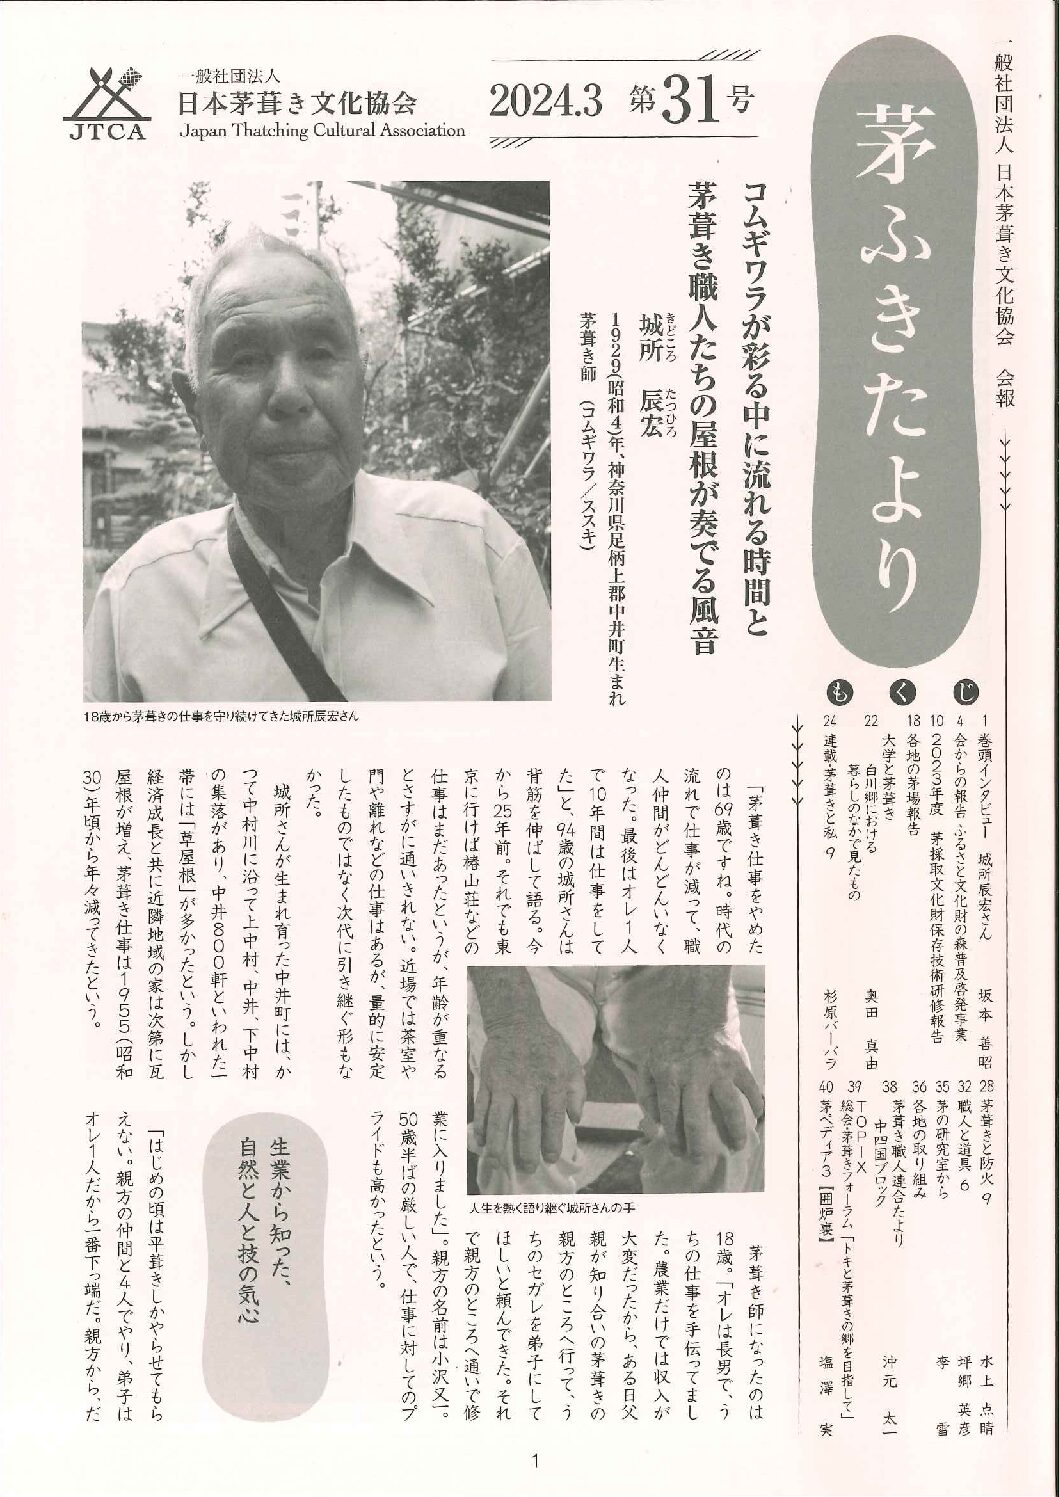 一般社団法人 日本茅葺き文化協会 会報
茅ふきたより
JTCA
一般社団法人
日本茅葺き文化協会
Japan Thatching Cultural Association
2024.3 第31号
コムギワラが彩る中に流れる時間と
茅葺き職人たちの屋根が奏でる風音
城所 辰宏
きどころ たつひろ
1929(昭和4)年、神奈川県足柄上郡中井町生まれ
茅葺き師 (コムギワラ/ススキ)
18歳から茅葺きの仕事を守り続けてきた城所辰宏さん
もくじ
1 巻頭インタビュー 城所辰宏さん 坂本 善昭
4 会からの報告 ふるさと文化財の森普及啓発事業
10 2023年度 茅採取文化財保存技術研修報告
18 各地の茅場報告
大学と茅葺き
22 白川郷における
暮らしのなかで見たもの 奥田 真由
24 連載・茅葺きと私 9 杉原バーバラ
28 茅葺きと防火 9 水上 点晴
32 職人と道具 6 坪郷 英彦
35 茅の研究室から 李 雪
36 各地の取り組み
茅葺き職人連合たより
38 中四国ブロック 沖元 太一
39 TOPIX
総会・茅葺きフォーラム「トキと茅葺きの郷を目指して」
40 茅ペディア3【囲炉裏】 塩澤 実
「茅葺き仕事をやめた
のは69歳ですね。時代の
流れで仕事が減って、職
人仲間がどんどんいなく
なった。最後はオレ1人
で10年間は仕事をして
た」と、94歳の城所さんは
背筋を伸ばして語る。今
から25年前。それでも東
京に行けば椿山荘などの
仕事はまだあったというが、年齢が重なる
とさすがに通いきれない。近場では茶室や
門や離れなどの仕事はあるが、量的に安定
したものではなく次代に引き継ぐ形もな
かった。
城所さんが生まれ育った中井町には、か
つて中村川に沿って上中村、中井、下中村
の集落があり、中井800軒といわれた一
帯には「草屋根」が多かったという。しかし
経済成長と共に近隣地域の家は次第に瓦
屋根が増え、茅葺き仕事は1955(昭和
30)年頃から年々減ってきたという。
人生を熱く語り継ぐ城所さんの手
茅葺き師になったのは
18歳。「オレは長男で、う
ちの仕事を手伝ってまし
た。農業だけでは収入が
大変だったから、ある日父
親が知り合いの茅葺きの
親方のところへ行って、う
ちのセガレを弟子にして
ほしいと頼んできた。それ
で親方のところへ通いで修
業に入りました」。親方の名前は小沢又一。
50歳半ばの厳しい人で、仕事に対してのプ
ライドも高かったという。
生業から知った、
自然と人と技の気心
「はじめの頃は平葺きしかやらせてもら
えない。親方の仲間と4人でやり、弟子は
オレ1人だから一番下っ端だ。親方から、だ
1